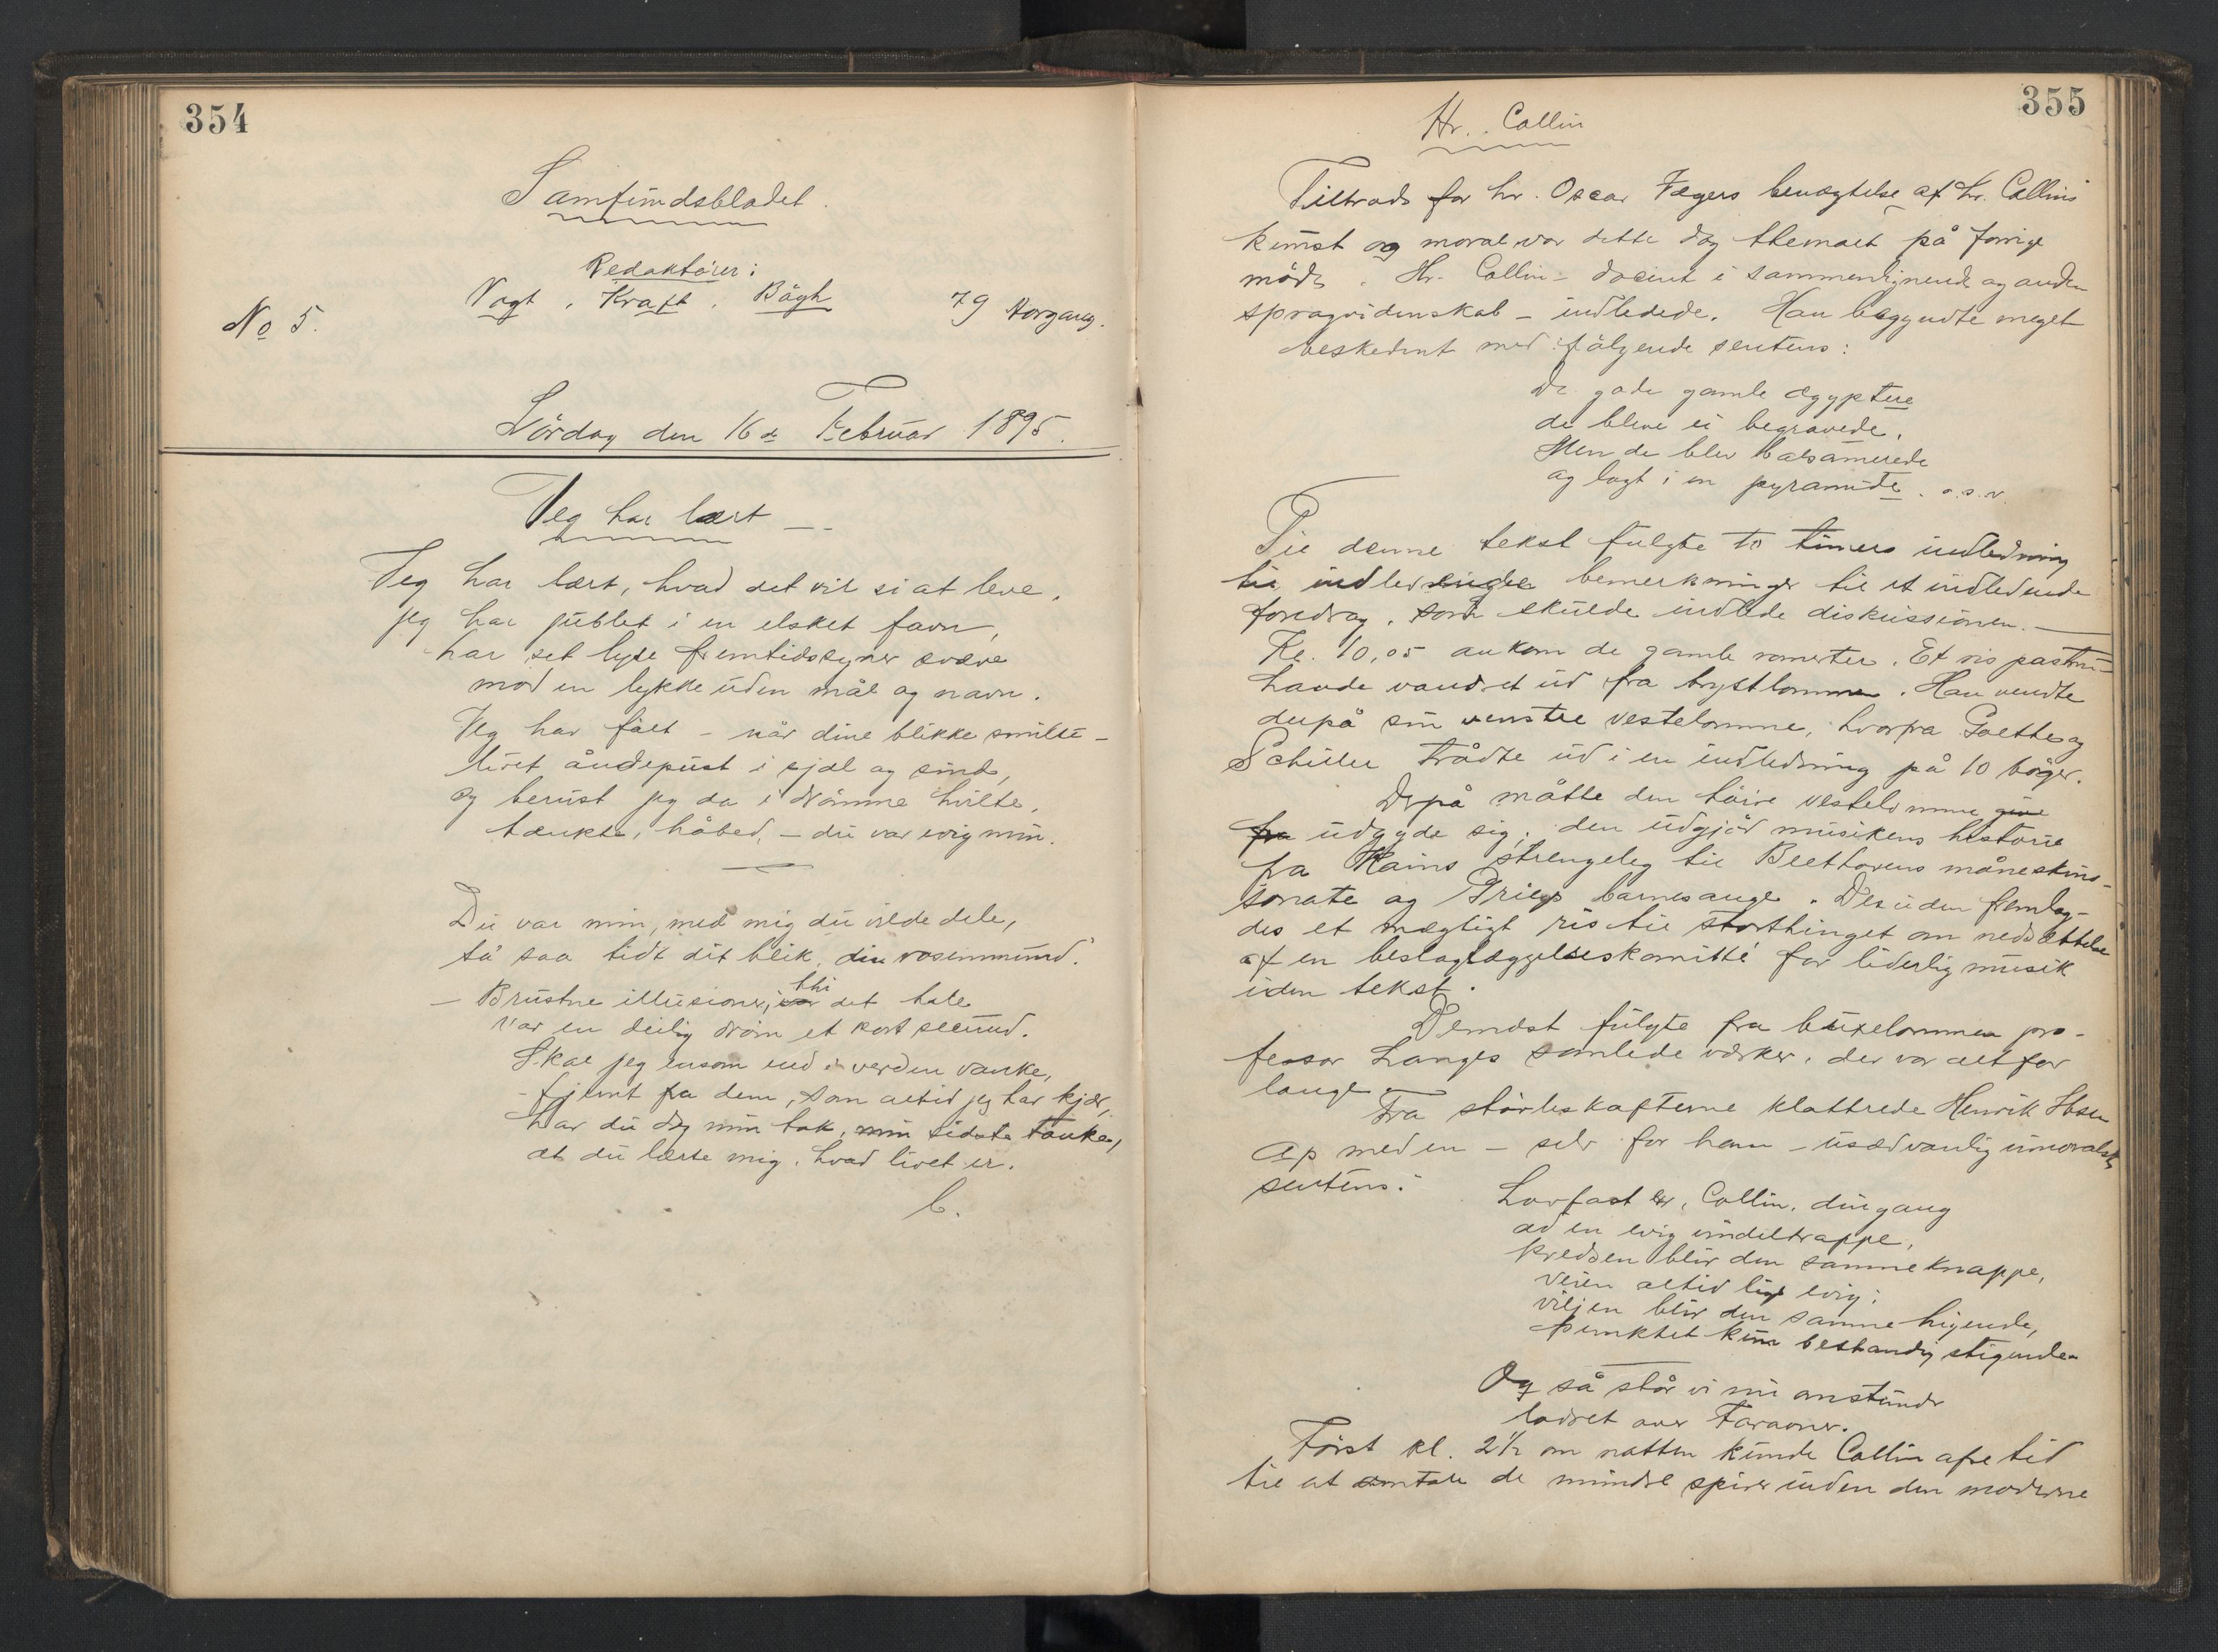 354
Samfundsbladet.
Redaktører:
Vogt, Kraft, Bögh
No 5.
79 Aorgang.
Lördag den 16de Februar 1895.
Jeg har lært —
Jeg har lært, hvad det vil si at leve,
jeg har jublet i en elsket favn,
har set lyse fremtidssyner svæve
mod en lykke uden mål og navn.
Jeg har fået – når dine blikke smilte –
livet åndepust i sjæl og sind,
og berust jeg da i drömme hvilte,
tænkte, håbed, – du var evig min.
Du var min, med mig du vilde dele,
så saa tidt dit blik, din rosenmund.
– Brustne illusioner, thi det hele
var en deilig dröm et kort secund.
Skal jeg ensom ud i verden vanke,
– fjernt fra dem, som altid jeg har kjær,
har du dog min tak, min sidste tanke,
at du lærte mig, hvad livet er.
C.
355
Hr. Collin
Tiltrods for hr. Oscar Jægers benægtelse af hr. Collins
kunst og moral var dette dog themaet på forrige
möde. Hr. Collin – docent i sammenlignende og anden
sprogvidenskab – indledede. Han begyndte meget
beskedent med fölgende sentens:
De gode gamle ægyptere
de bleve ei begravede,
Men de blev balsamerede
og lagt i en pyramide. o.s.v.
Til denne tekst fulgte to timers indledning
til indledningen bemerkninger til et indledende
foredrag, som skulde indlede diskussionen. —
Kl. 10,05 ankom de gamle romerter. Et vis
havde vandret ud fra brystlommen. Han vendte
derpå sin venstre vestelomme, hvorfra Goethe og
Schiller trådte ud i en indledning på 10 böger.
Derpå måtte den höire vestelomme give
fra udgyde sig; den udgjör musikens historie
fra Kains strengeleg til Beethovens måneskins-
sonate og Griegs barnesange. Desuden fremlag-
des et mægtigt ris til storthinget om nedsættelse
af en beslaglæggelseskomitté for liderlig musik
uden tekst.
Dernæst fulgte fra buxelommen pro-
fessor Langes samlede værker, der var alt for
lange —
Fra stövleskafterne klattrede Henrik Ibsen
op med en – selv for ham – usædvanlig umoralsk
sentens:
Lovfast er, Collin, din gang
ad en evig vindeltrappe,
kredsen blir den samme knappe,
veien altid lige evig;
viljen blir den samme higende,
punktet kun bestandig stigende.
Og så står vi nu omstunde
lodret over Faraoner.
Först kl. 2½ om natten kunde Collin afse tid
til at omtale de mindre spirer inden den moderne